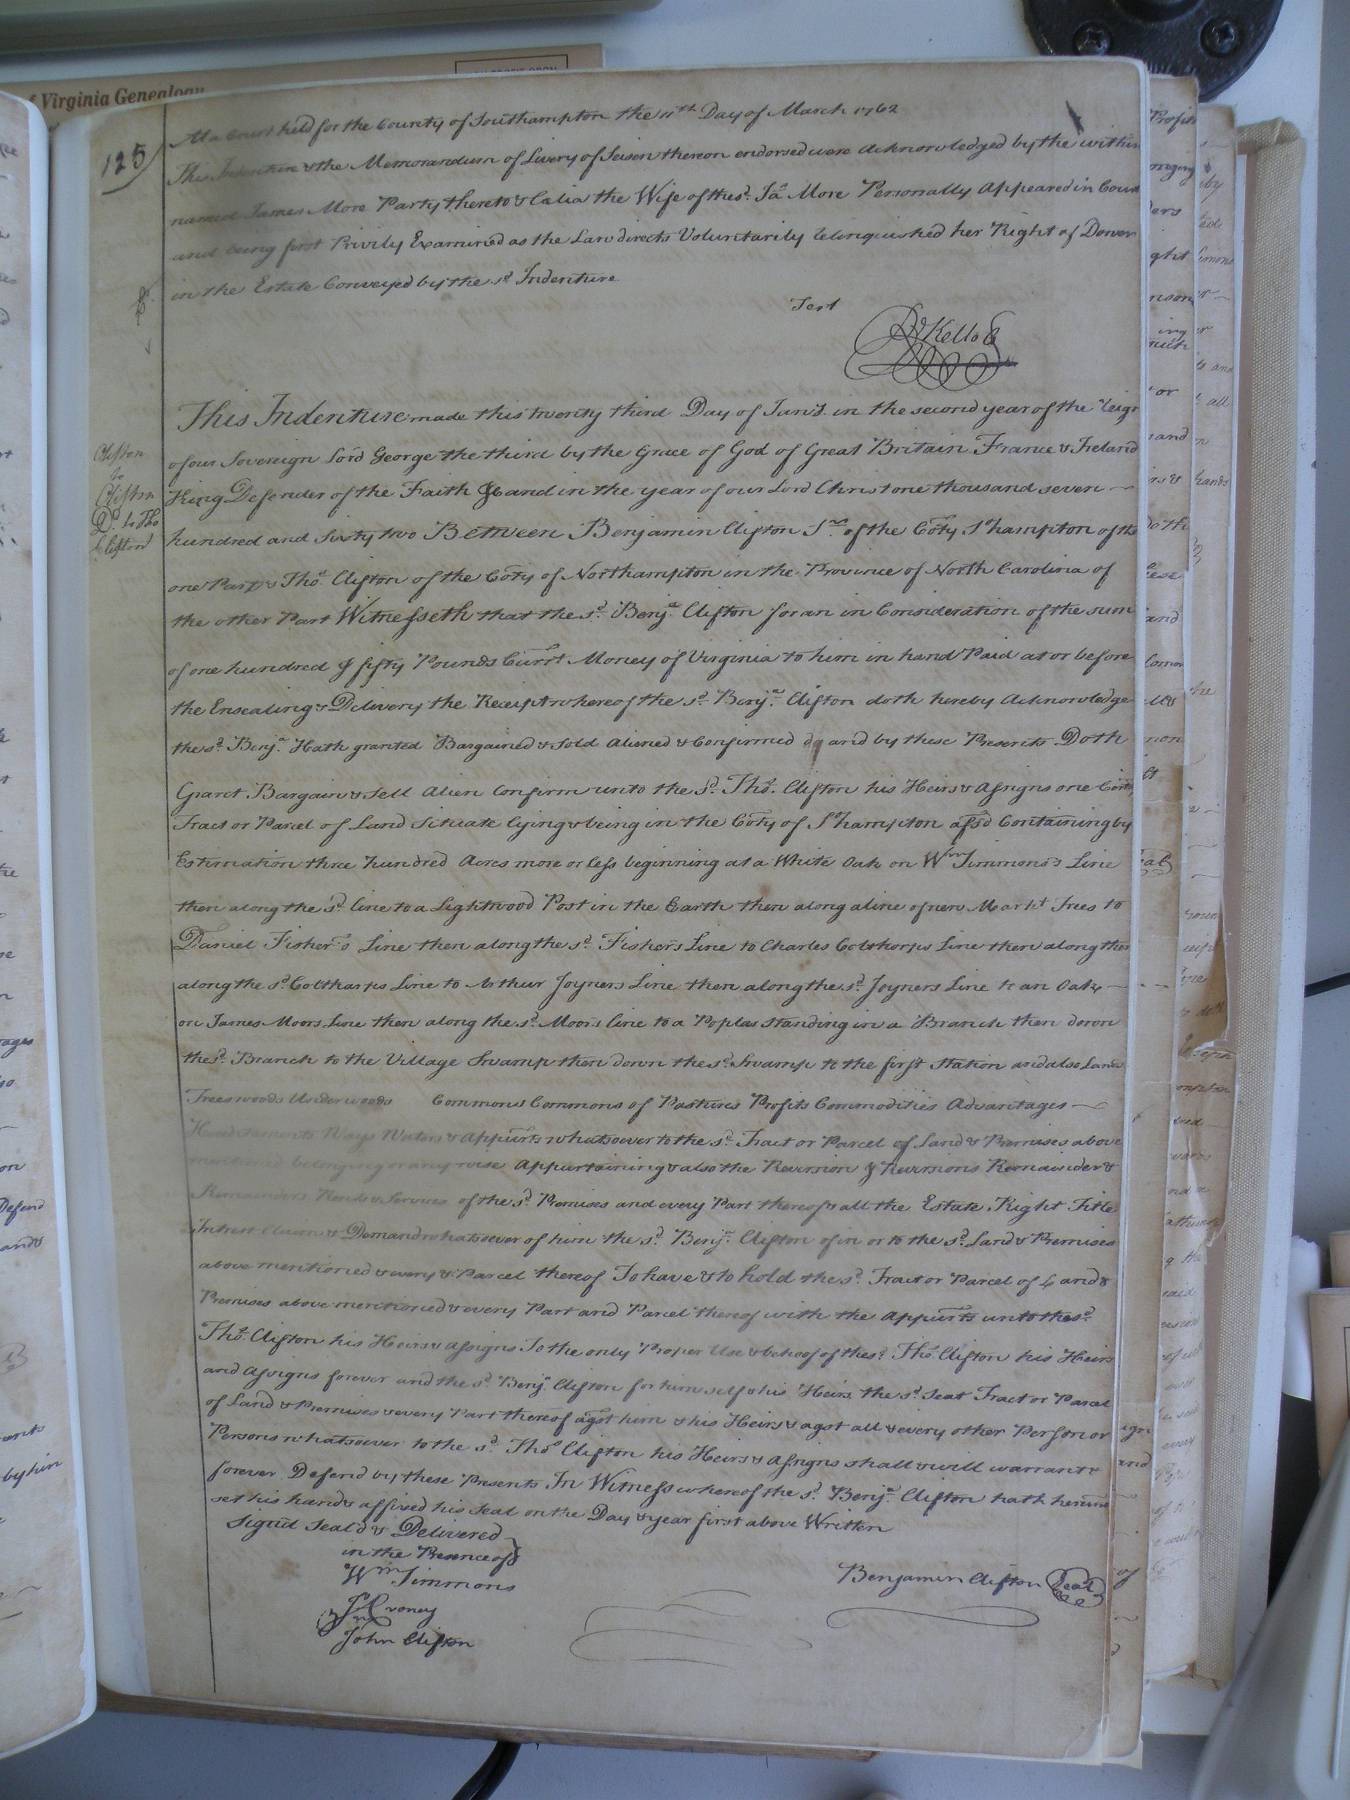 of Virginia Genealogy
125
At a Court held for the County of Southampton the 11th Day of March 1762
This Indenture & the Memorandum of Livery of Seisen thereon endorsed were Acknowledged by the within
named James More Party thereto & Celia the Wife of the sd. Jas More Personally Appeared in Court
and being first Privily Examined as the Law directs Voluntarily Relinquished her Right of Dower
in the Estate Conveyed by the sd Indenture
Test
Rd Kello
Clifton
to
Clifton
Dd. to Tho
Clifton
This Indenture made this twenty third Day of Jany. in the second year of the Reign
of our Sovereign Lord George the third by the Grace of God of Great Britain France & Ireland
King Defender of the Faith &c and in the year of our Lord Christ one thousand seven
hundred and Sixty two Between Benjamin Clifton Sr. of the Coty Shampton of the
one Part & Thos Clifton of the Coty of Northampton in the Province of North Carolina of
the other Part Witnesseth that the sd. Benja Clifton for an in Consideration of the sum
of one hundred & fifty Pounds Currt Money of Virginia to him in hand Paid at or before
the Ensealing & Delivery the Receipt whereof the sd. Benja. Clifton doth hereby Acknowledge
the sd. Benja Hath granted Bargained & Sold Aliened & Confirmed and by these Presents Doth
Grant Bargain & Sell Alien Confirm unto the sd. Thos. Clifton his Heirs & Assigns one Certn
Tract or Parcel of Land Situate lying & being in the Coty of Shampton afsd Containing by
Estimation three hundred Acres more or less beginning at a White Oak on Wm Simmons's Line
then along the sd. line to a Lightwood Post in the Earth then along a line of new Markt Trees to
Daniel Fisher's Line then along the sd. Fishers Line to Charles Colthorps Line then along then
along the sd. Colthorps Line to Arthur Joyners Line then along the sd. Joyners Line to an Oak
on James Moors Line then along the sd. Moors line to a Poplar Standing in a Branch then down
the sd. Branch to the Village Swamp then down the sd. Swamp to the first Station and also Land
Trees woods Underwoods Commons Commons of Pastures Profits Commodities Advantages
Hereditaments Ways Waters & Appurts whatsoever to the sd. Tract or Parcel of Land & Premises above
mentioned belonging or any wise Appurtaining & also the Reversion & Reversions Remainder &
Remainders Rents & Services of the sd. Premises and every Part thereof & all the Estate Right Title
Intrest Claim & Demand whatsoever of him the sd. Benja. Clifton of in or to the sd. Land & Premises
above mentioned & every & Parcel thereof To have & to hold the sd. Tract or Parcel of Land &
Premises above mentioned & every Part and Parcel thereof with the Appurts unto the sd.
Thos. Clifton his Heirs & Assigns To the only Proper Use & behoof of the sd. Thos. Clifton his Heirs
and Assigns forever and the sd. Benja Clifton for him self & his Heirs the sd. Seat Tract or Parcel
of Land & Premises & every Part thereof agst him & his Heirs & agst all & every other Person or
Persons whatsoever to the sd. Thos Clifton his Heirs & Assigns shall & will warrant &
forever Defend by these Presents In Witness whereof the sd. Benja Clifton hath hereunto
set his hand & affixed his Seal on the Day & year first above Written
Signd Seal'd & Delivered
in the Presence of
Wm Simmons
Benjamin Clifton Seal
John Clifton